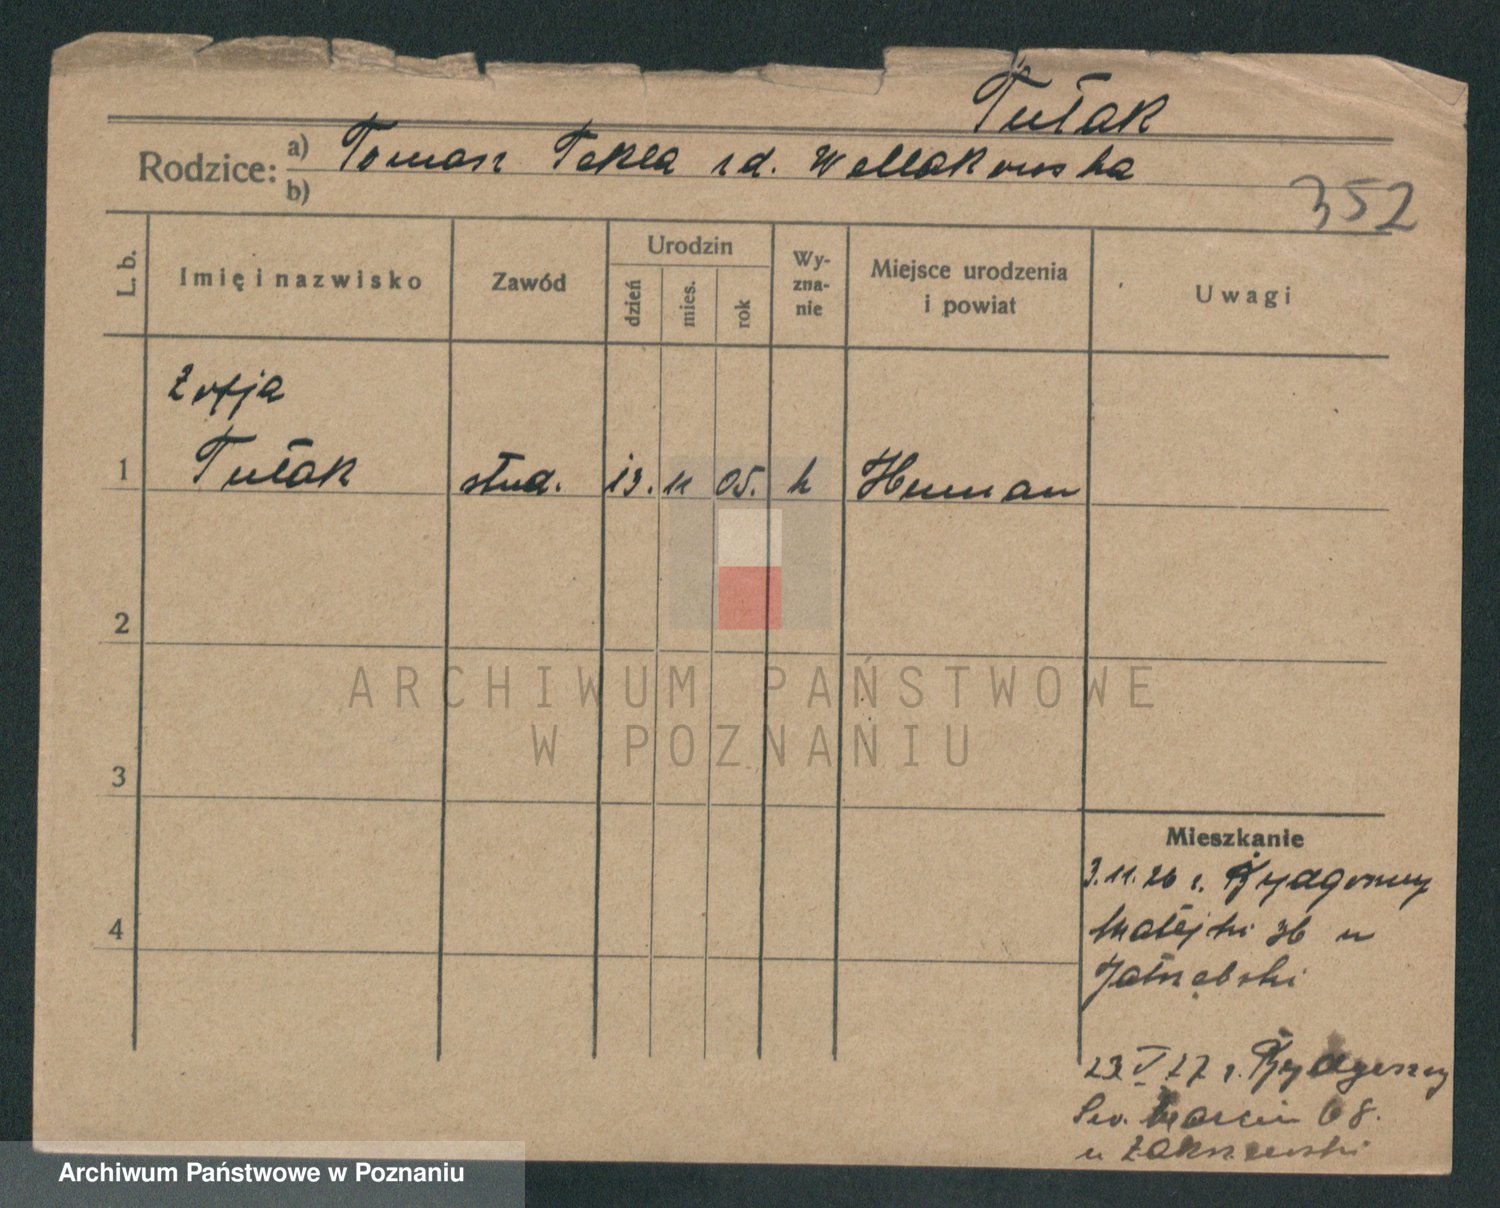 Tułak
Rodzice: a) Tomasz Tekla zd. Wellakowska
b)
352
L. b. Imię i nazwisko Zawód Urodzin dzień mies. rok Wyznanie Miejsce urodzenia i powiat Uwagi
Zofja
1 Tułak stud. 13. 11 05. k Human
2
ARCHIWUM PAŃSTWOWE
W POZNANIU
3
Mieszkanie
3.11.26 z Bydgoszczy
4 Matejki 36 u
23 V 27 z Bydgoszczy
Św. Marcin 68.
u Zakrzewski
Archiwum Państwowe w Poznaniu